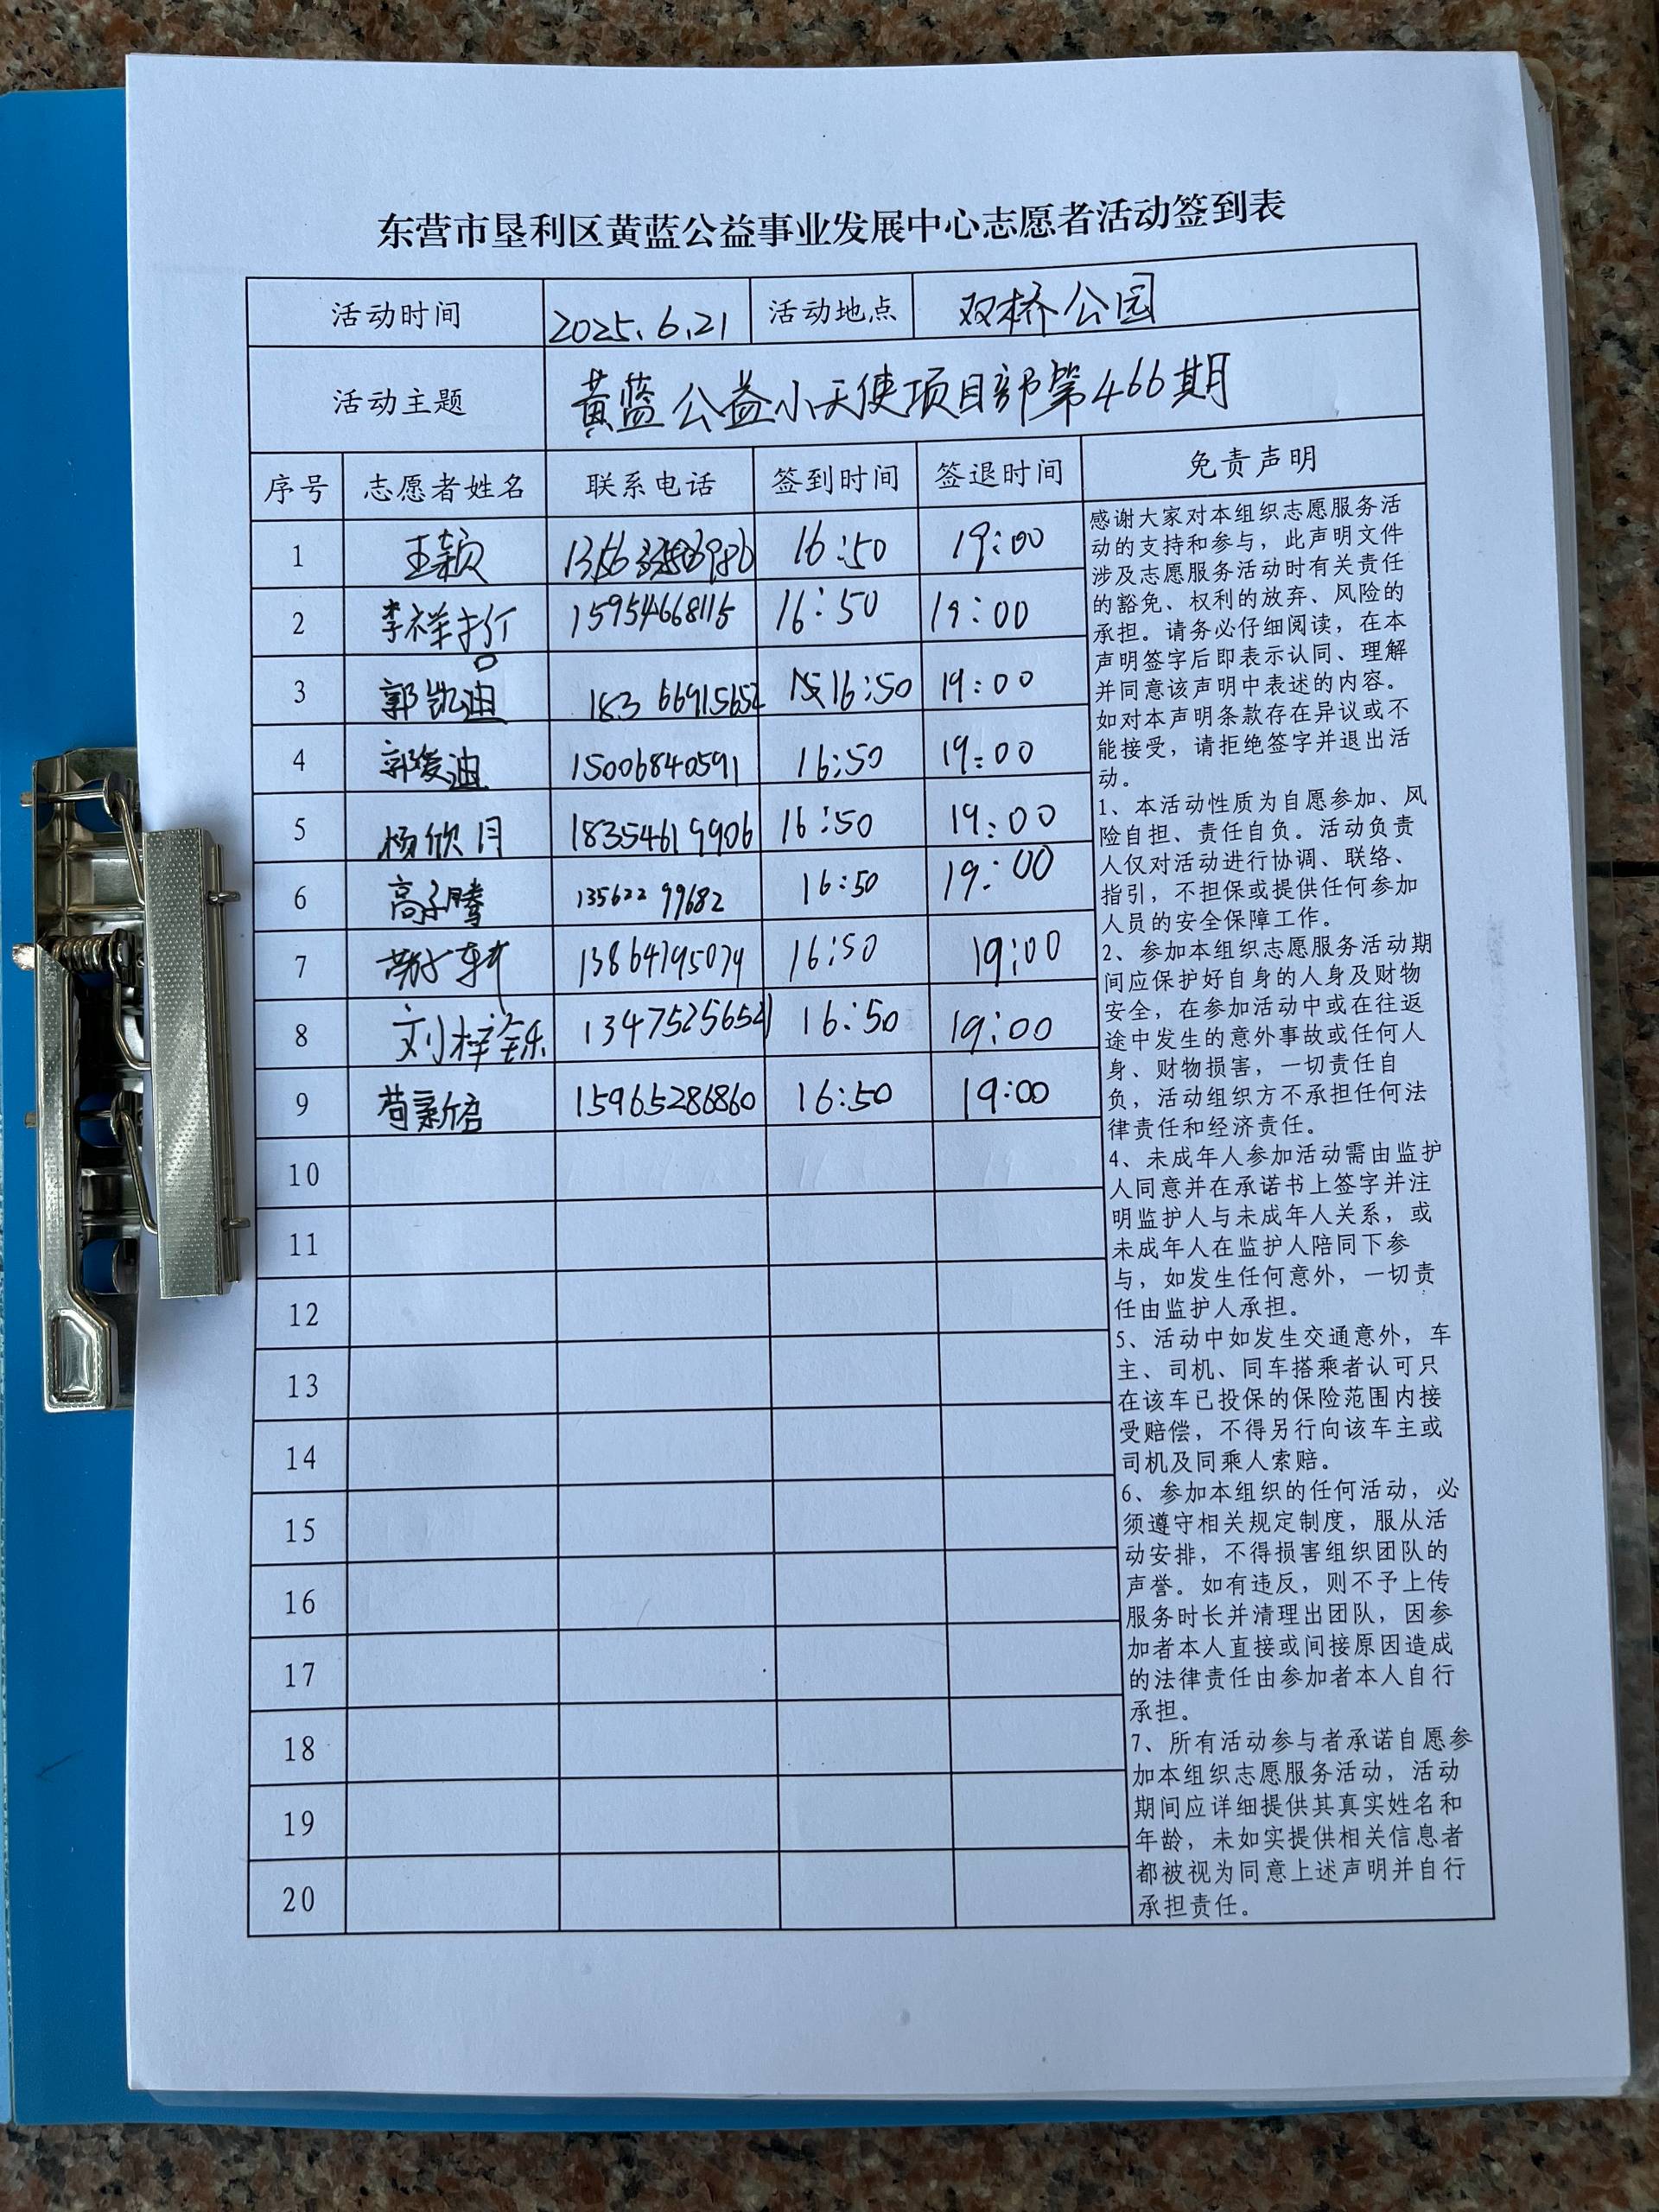 东营市垦利区黄蓝公益事业发展中心志愿者活动签到表
活动时间 2025.6.21 活动地点 双桥公园
活动主题 黄蓝公益小天使项目部第466期
序号 志愿者姓名 联系电话 签到时间 签退时间 免责声明
1 王颖 16:50 19:00
2 李祥 15954668115 16:50 19:00
3 郭凯迪 18366915652 16:50 19:00
4 郭爱迪 15006840591 16:50 19:00
5 杨欣月 18354619906 16:50 19:00
6 高子腾 13562299682 16:50 19:00
7 13864795079 16:50 19:00
8 刘梓铄 16:50 19:00
9 苟新启 15965286860 16:50 19:00
10
11
12
13
14
15
16
17
18
19
20
感谢大家对本组织志愿服务活
动的支持和参与，此声明文件
涉及志愿服务活动时有关责任
的豁免、权利的放弃、风险的
承担。请务必仔细阅读，在本
声明签字后即表示认同、理解
并同意该声明中表述的内容。
如对本声明条款存在异议或不
能接受，请拒绝签字并退出活
动。
1、本活动性质为自愿参加、风
险自担、责任自负。活动负责
人仅对活动进行协调、联络、
指引，不担保或提供任何参加
人员的安全保障工作。
2、参加本组织志愿服务活动期
间应保护好自身的人身及财物
安全，在参加活动中或在往返
途中发生的意外事故或任何人
身、财物损害，一切责任自
负，活动组织方不承担任何法
律责任和经济责任。
4、未成年人参加活动需由监护
人同意并在承诺书上签字并注
明监护人与未成年人关系，或
未成年人在监护人陪同下参
与，如发生任何意外，一切责
任由监护人承担。
5、活动中如发生交通意外，车
主、司机、同车搭乘者认可只
在该车已投保的保险范围内接
受赔偿，不得另行向该车主或
司机及同乘人索赔。
6、参加本组织的任何活动，必
须遵守相关规定制度，服从活
动安排，不得损害组织团队的
声誉。如有违反，则不予上传
服务时长并清理出团队，因参
加者本人直接或间接原因造成
的法律责任由参加者本人自行
承担。
7、所有活动参与者承诺自愿参
加本组织志愿服务活动，活动
期间应详细提供其真实姓名和
年龄，未如实提供相关信息者
都被视为同意上述声明并自行
承担责任。